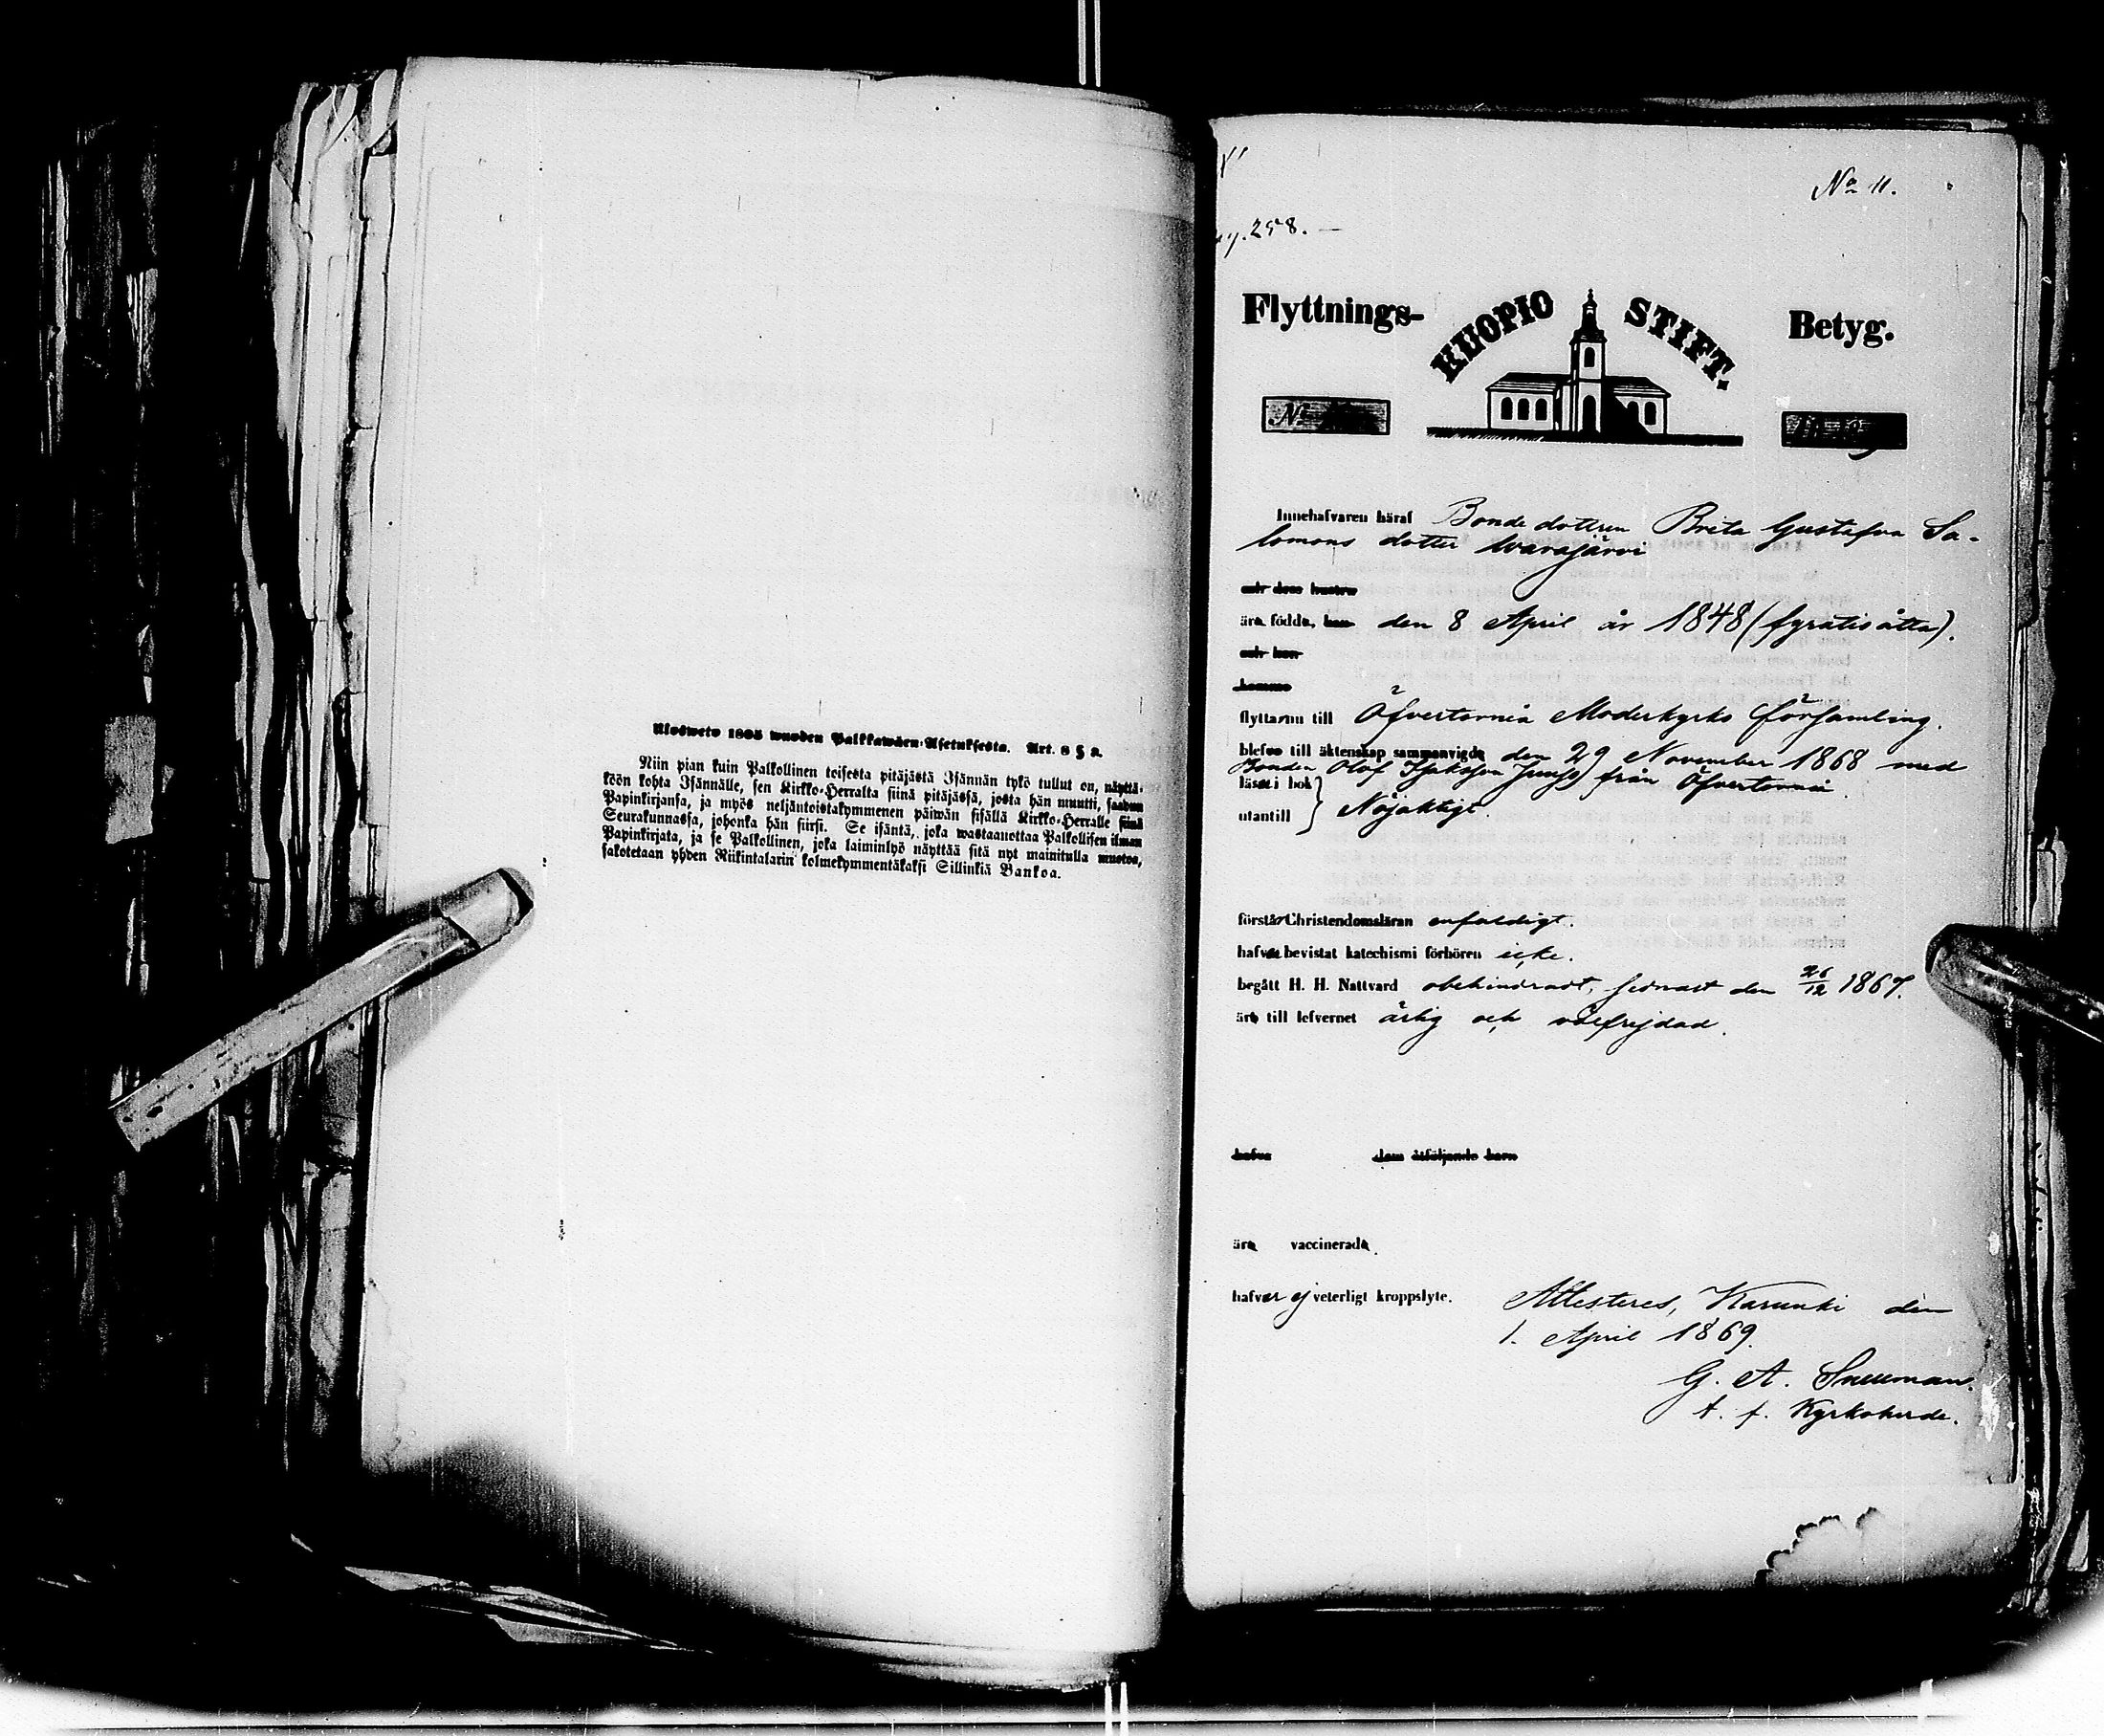 Ulosweto 1805 wuoden Palkkawäen-Asetuksesta. Art. 8 § 2.
Niin pian kuin Palkollinen toisesta pitäjästä Isännän tykö tullut on, näyttä-
köön kohta Isännälle, sen Kirkko-Herralta siinä pitäjässä, josta hän muutti, saadun
Papinkirjansa, ja myös neljäntoistakymmenen päiwän sisällä Kirkko-Herralle siinä
Seurakunnassa, johonka hän siirsi. Se isäntä, joka wastaanottaa Palkollisen ilman
Papinkirjata, ja se Palkollinen, joka laiminlyö näyttää sitä nyt mainitulla muotoa,
sakotetaan yhden Riikintalarin kolmekymmentäkaksi Sillinkiä Bankoa.
No 11.
258.
Flyttnings- KUOPIO STIFT. Betyg.
No
Innehafvaren häraf Bonde dottren Brita Gustafva Sa-
lomons dotter Waarajärvi
och dess hustru
äro födde, han den 8 April år 1848 (fyratioåtta).
och hon
komme
flyttar nu till Öfvertorneå Moderkyrko församling.
blefvo till äktenskap sammanvigde den 29 November 1868 med
Bonden Olof Isaksson Junso från Öfvertorneå
läser i bok
utantill } Nöjaktigt.
förstår Christendomsläran enfaldigt.
hafva bevistat katechismi förhören icke.
begått H. H. Nattvard obehindradt, sednast den 26/12 1867.
äro till lefvernet ärlig och välfrejdad.
hafva dem åtföljande barn
äro vaccinerade.
hafver ej veterligt kroppslyte. Attesteres, Karunki den
1. April 1869.
G. A. Snellman.
t. f. Kyrkoherde.